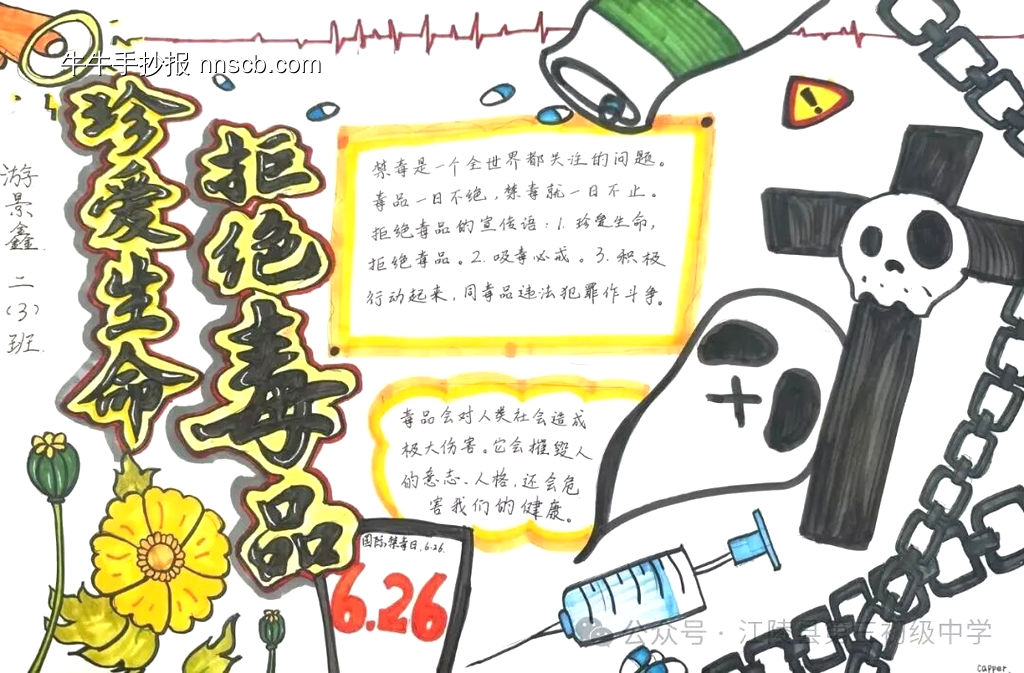 牛牛手抄报 nnscb.com
珍爱生命
拒绝毒品
游景鑫 二(3)班
禁毒是一个全世界都关注的问题。
毒品一日不绝,禁毒就一日不止。
拒绝毒品的宣传语:1.珍爱生命,
拒绝毒品。2.吸毒必戒。3.积极
行动起来,同毒品违法犯罪作斗争。
毒品会对人类社会造成
极大伤害。它会摧毁人
的意志、人格,还会危
害我们的健康。
国际禁毒日,6.26.
6.26
公众号·江陵县 初级中学
capper.